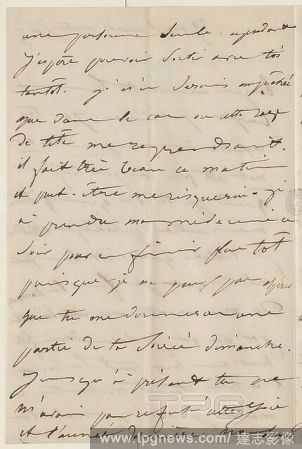 une personne seule. cependant
j'espère pouvoir sortir avec toi
tantôt. je n'en serais empêché
que dans le cas où cette rage
de tête me reprendrait.
il fait très beau ce matin
et peut-être me risquerai-je
à prendre ma médecine ce
soir pour en finir plus tôt
puisque je ne puis pas espérer
que tu me donneras une
partie de ta soirée dimanche.
Jusqu'à présent tu ne
m'avais pas refusé cette
et l'année
www.tpgnews.com/達志影像